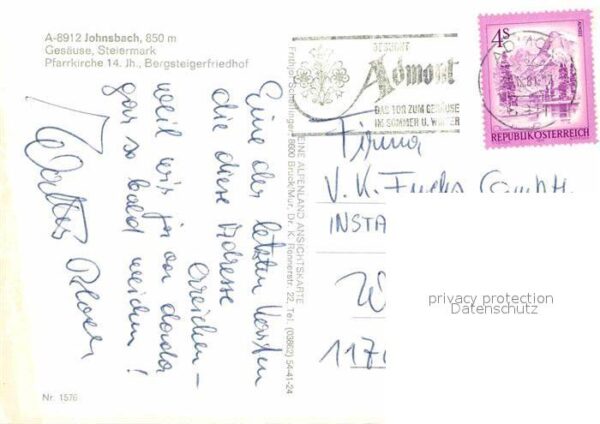 A-8912 Johnsbach, 850 m
Gesäuse, Steiermark
Pfarrkirche 14. Jh., Bergsteigerfriedhof
BESUCHT
Admont
DAS TOR ZUM GESÄUSE
IM SOMMER U. WINTER
4s
REPUBLIK ÖSTERREICH
Eine der letzten Karten
die diese Adresse
erreichen –
weil wir ja von dorten
gar so bald weichen!
Walter
EINE ALPENLAND ANSICHTSKARTE
8600 Bruck/Mur, Dr. K. Rennerstr. 22, Tel. (03862) 54-41-24
Firma
V. K. Fuchs GmbH.
INSTA
117
privacy protection
Datenschutz
Nr. 1576